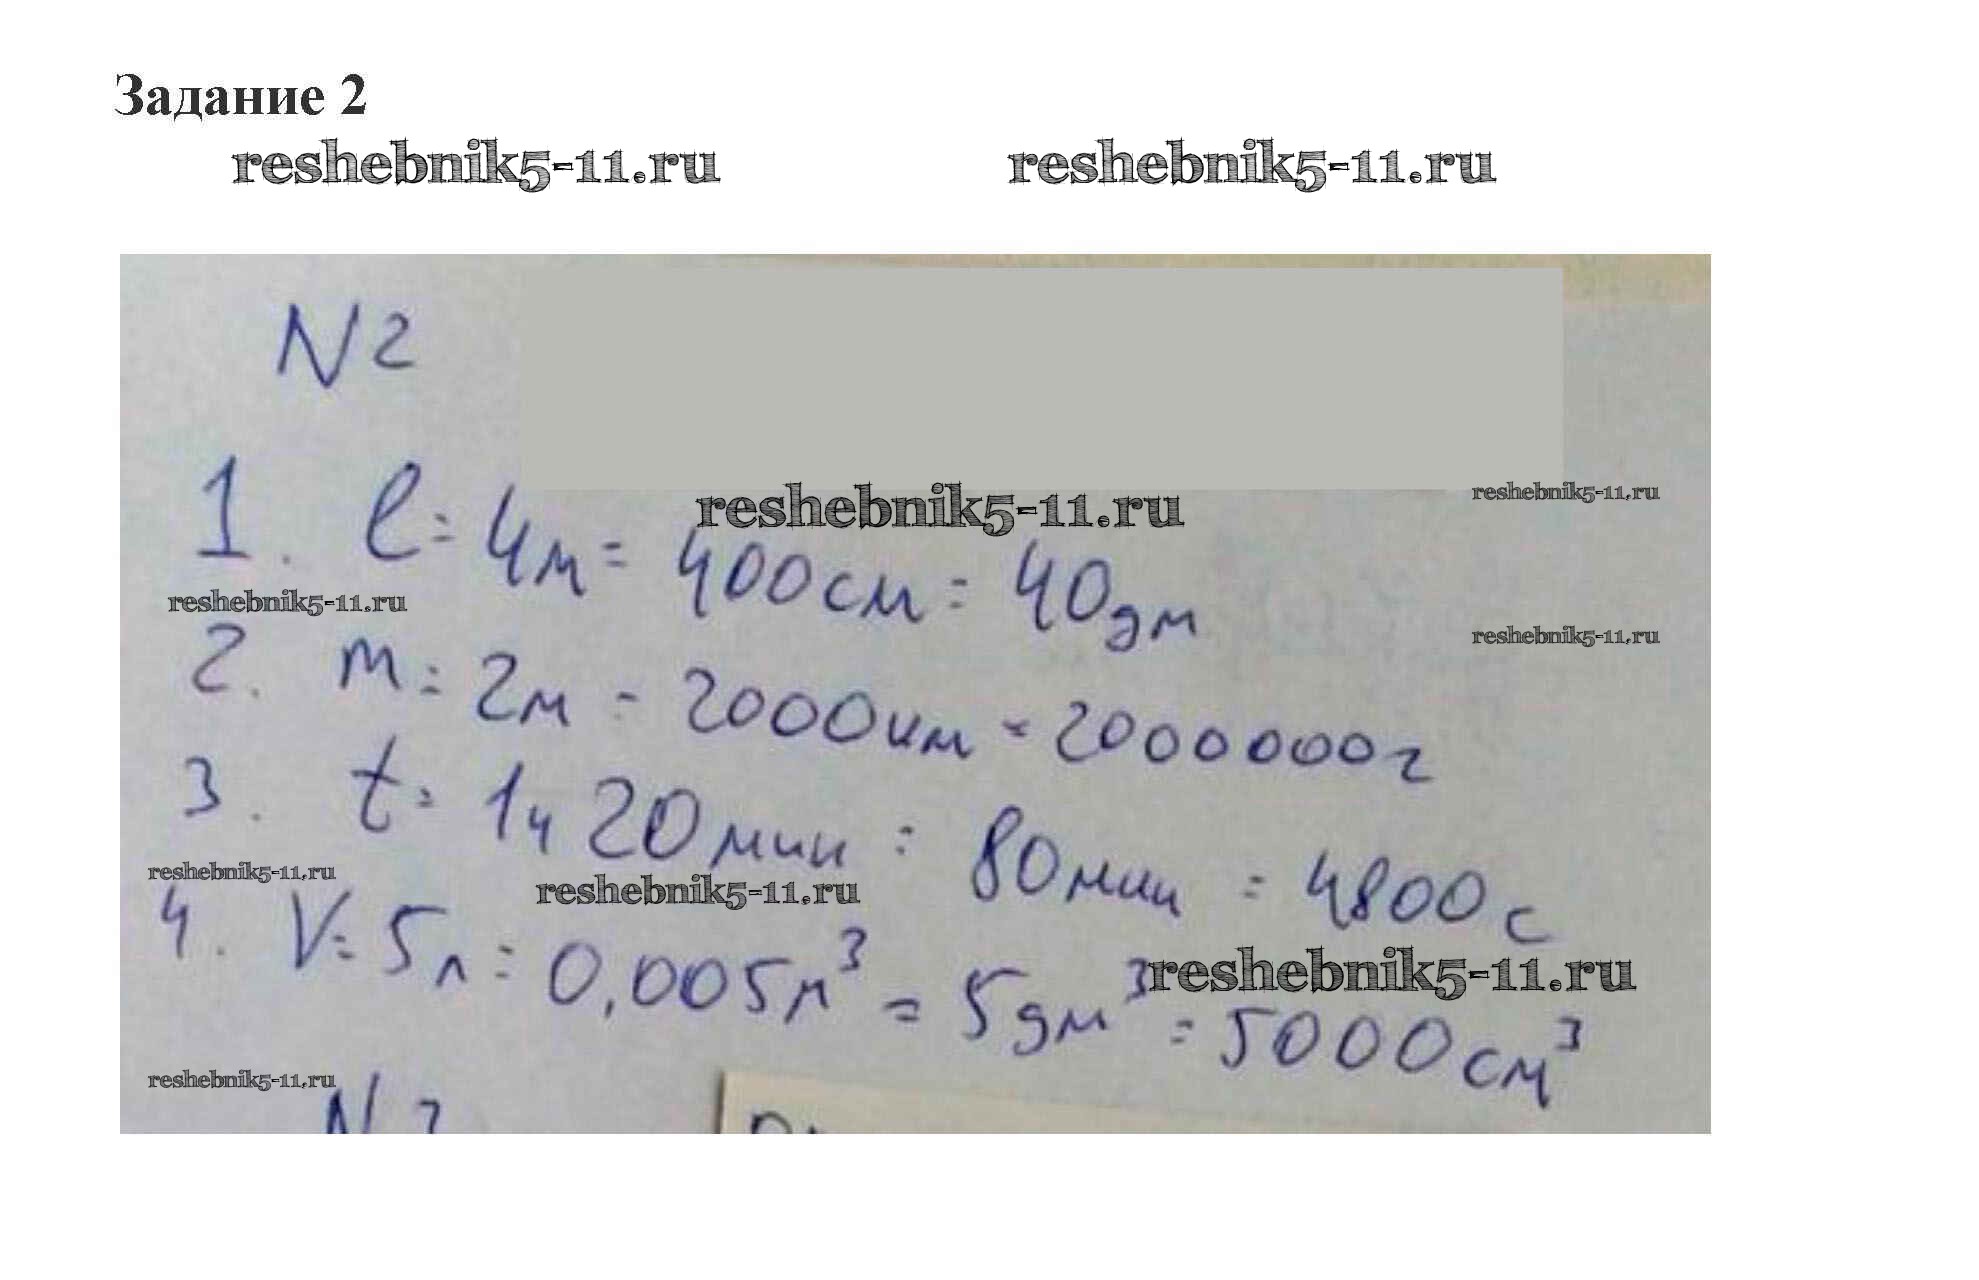 Задание 2
reshebnik5-11.ru reshebnik5-11.ru
N2
1. l = 4м = 400см = 40дм
reshebnik5-11.ru reshebnik5-11.ru
reshebnik5-11.ru reshebnik5-11.ru
2. m = 2м = 2000км = 2000000г
3. t = 1ч 20мин = 80мин = 4800с
reshebnik5-11.ru reshebnik5-11.ru
4. V = 5л = 0,005м³ = 5дм³ = 5000см³
reshebnik5-11.ru
reshebnik5-11.ru